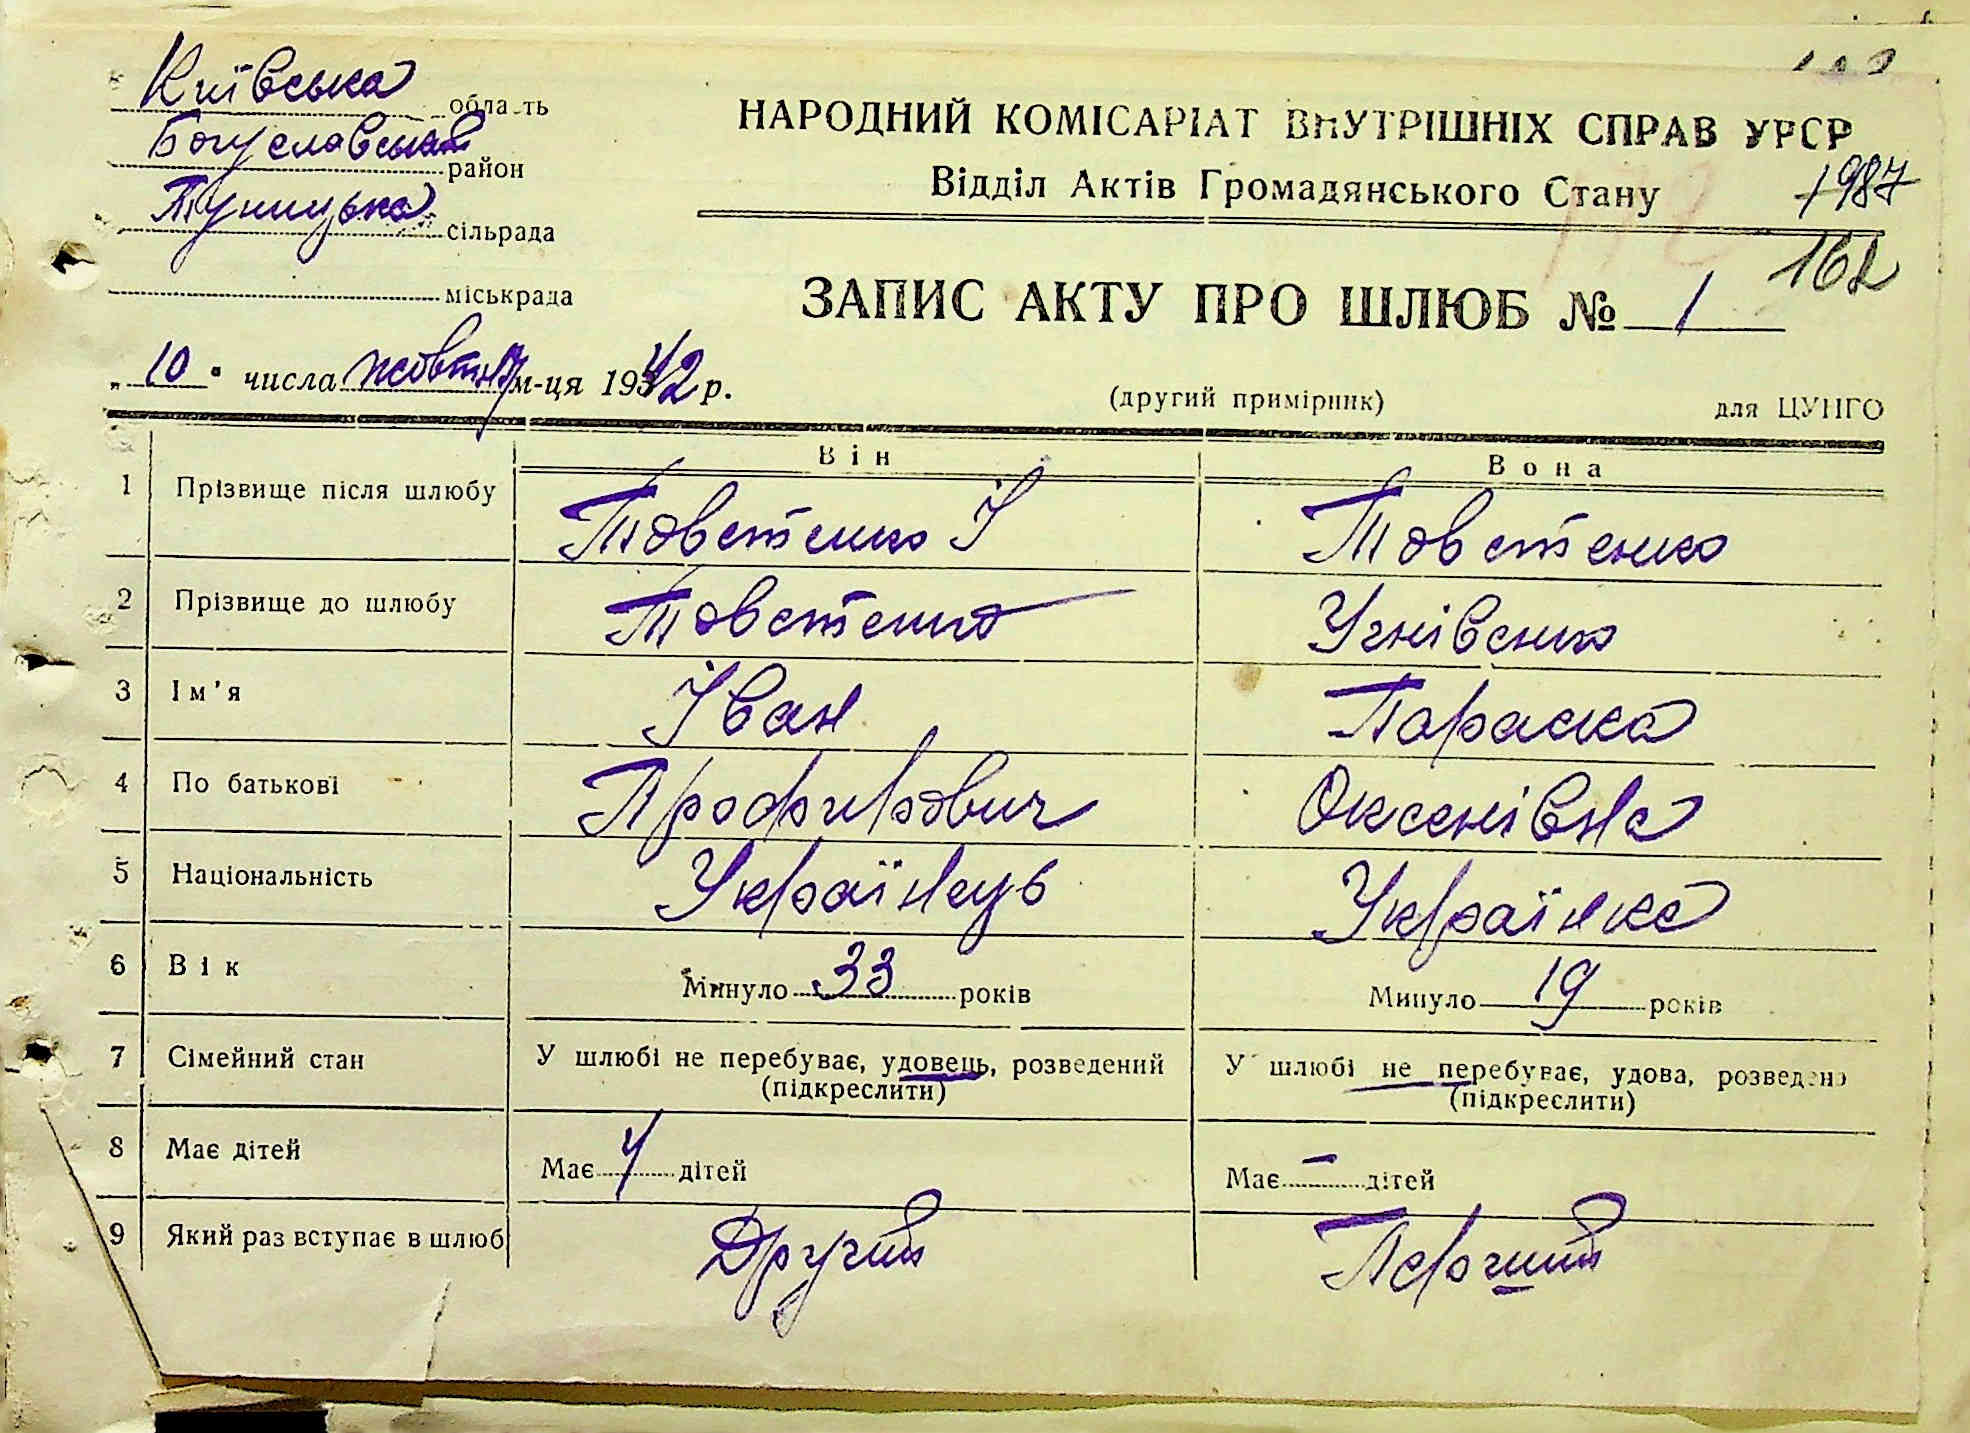 Київська область
Богуславський район
Туницька сільрада
міськрада
НАРОДНИЙ КОМІСАРІАТ ВНУТРІШНІХ СПРАВ УРСР
Відділ Актів Громадянського Стану
1987
162
ЗАПИС АКТУ ПРО ШЛЮБ № 1
„10" числа жовтня м-ця 1942 р.
(другий примірник)
для ЦУНГО
Він Вона
1 Прізвище після шлюбу Товстенко І Товстенко
2 Прізвище до шлюбу Товстенко Угнівенко
3 Ім'я Іван Параска
4 По батькові Профирович Оксенівна
5 Національність Українець Українка
6 Вік Минуло 33 років Минуло 19 років
7 Сімейний стан У шлюбі не перебуває, удовець, розведений У шлюбі не перебуває, удова, розведена
(підкреслити) (підкреслити)
8 Має дітей Має 4 дітей Має – дітей
9 Який раз вступає в шлюб Другий Перший